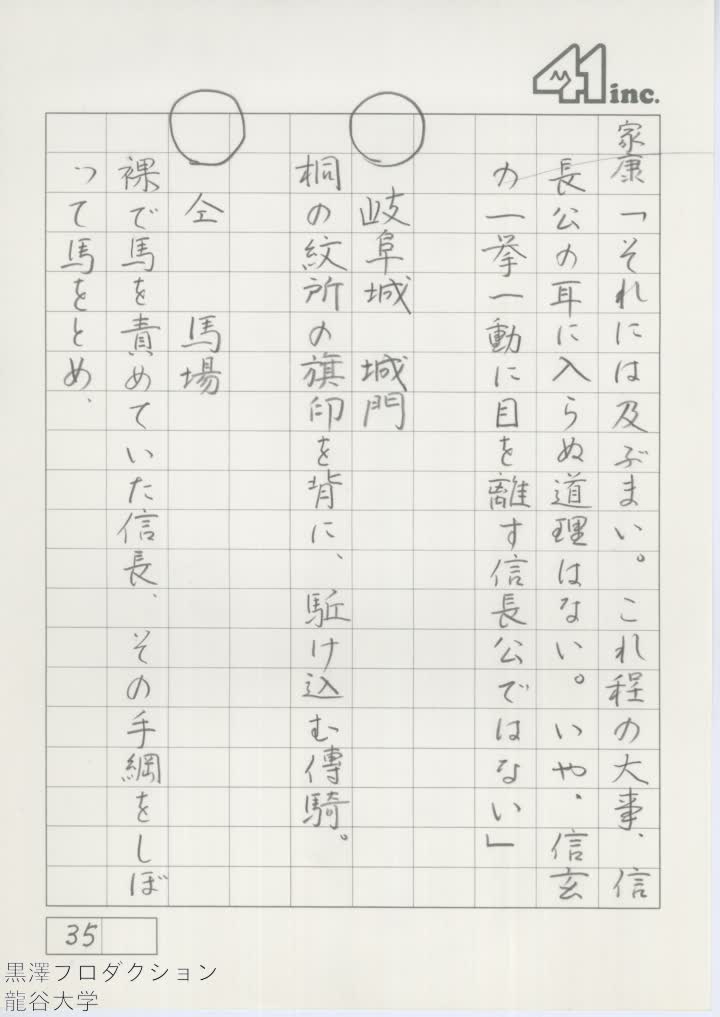 41 inc.
家康「それには及ぶまい。これ程の大事、信
長公の耳に入らぬ道理はない。いや、信玄
の一挙一動に目を離す信長公ではない」
○ 岐阜城 城門
桐の紋所の旗印を背に、駈け込む傳騎。
○ 仝 馬場
裸で馬を責めていた信長、その手綱をしぼ
って馬をとめ、
35
黒澤プロダクション
龍谷大学